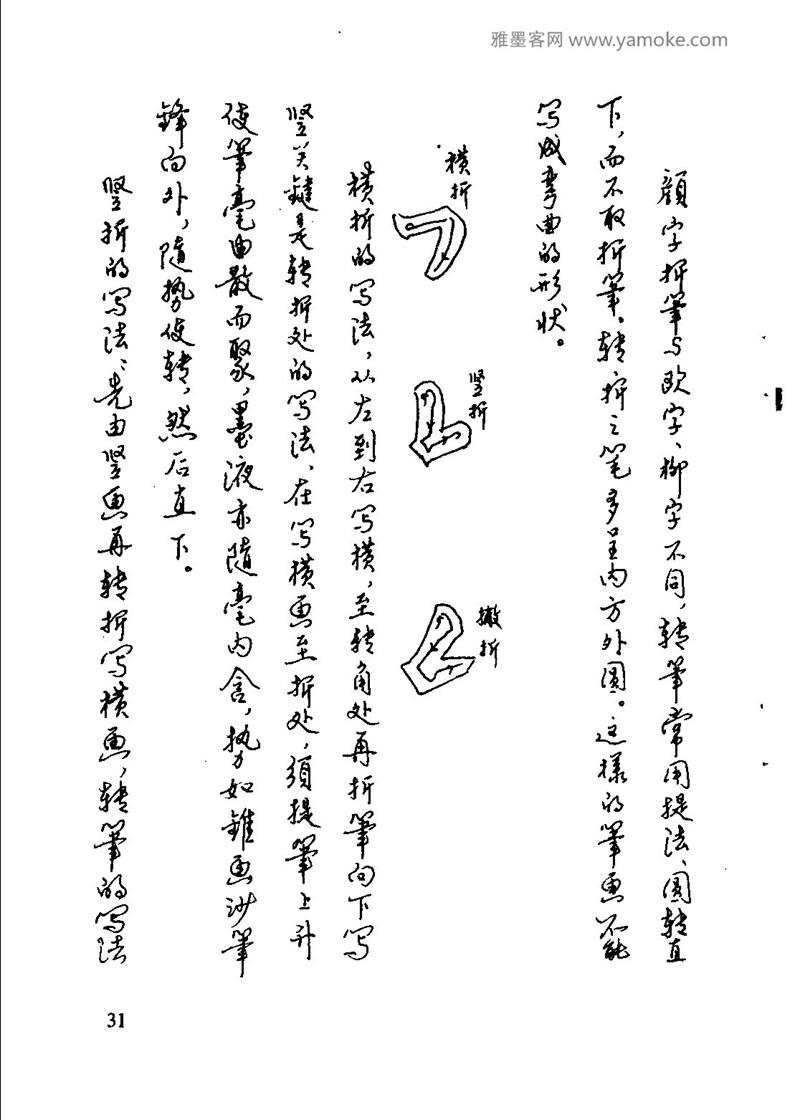 雅墨客网 www.yamoke.com
顔字折筆与欧字、柳字不同，转筆常用提法、圆转直
下，而不取折筆。转折之笔多呈内方外圆。这樣的筆画不能
写成弯曲的形状。
横折
竖折
撇折
横折的写法，从左到右写横，至转角处再折筆向下写
竖关鍵是转折处的写法、在写横画至折处，須提筆上升
使筆毫由散而聚，墨液亦随毫内含，势如錐画沙筆
鋒向外，随势使转，然后直下。
竖折的写法：先由竖画再转折写横画，转筆的写法
31